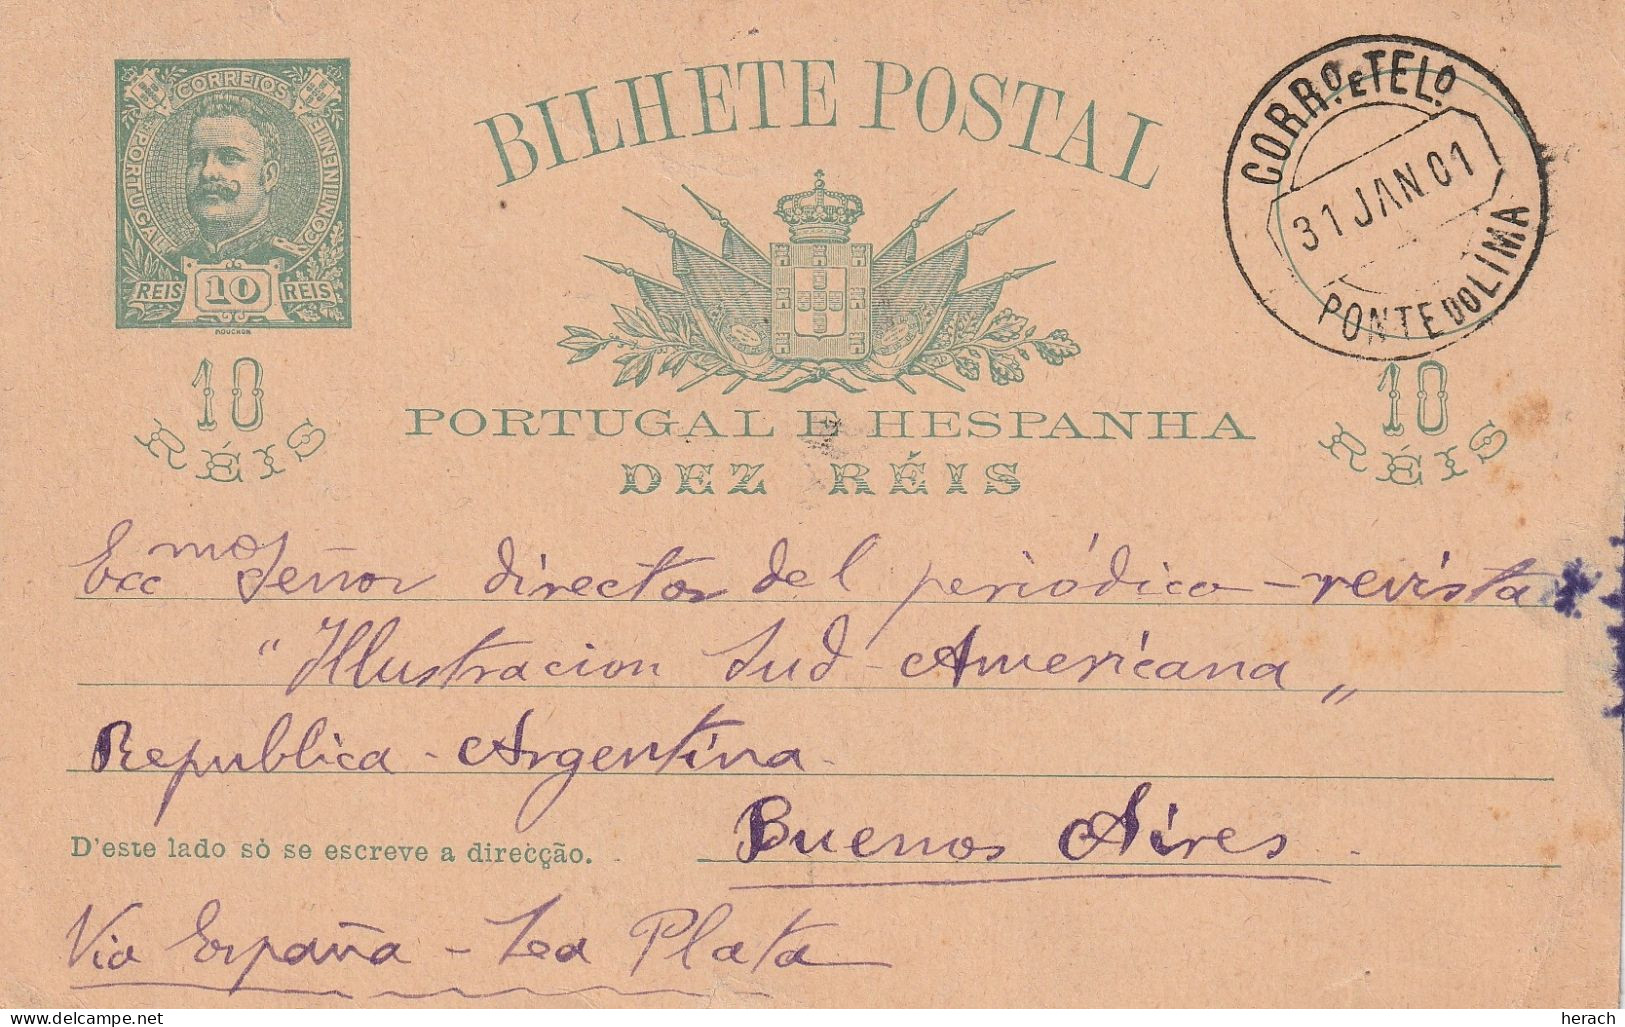 CORREIOS
PORTUGAL
CONTINENTE
REIS 10 REIS
MOUCHON
BILHETE POSTAL
CORRO. E TELO.
31 JAN 01
PONTE DO LIMA
10 RÉIS
10 RÉIS
PORTUGAL E HESPANHA
DEZ RÉIS
Excmo Señor director del periódico-revista
"Illustracion Sud-Americana"
Republica-Argentina.
Buenos Aires.
D'este lado só se escreve a direcção.
Via España - La Plata
herach
www.delcampe.net